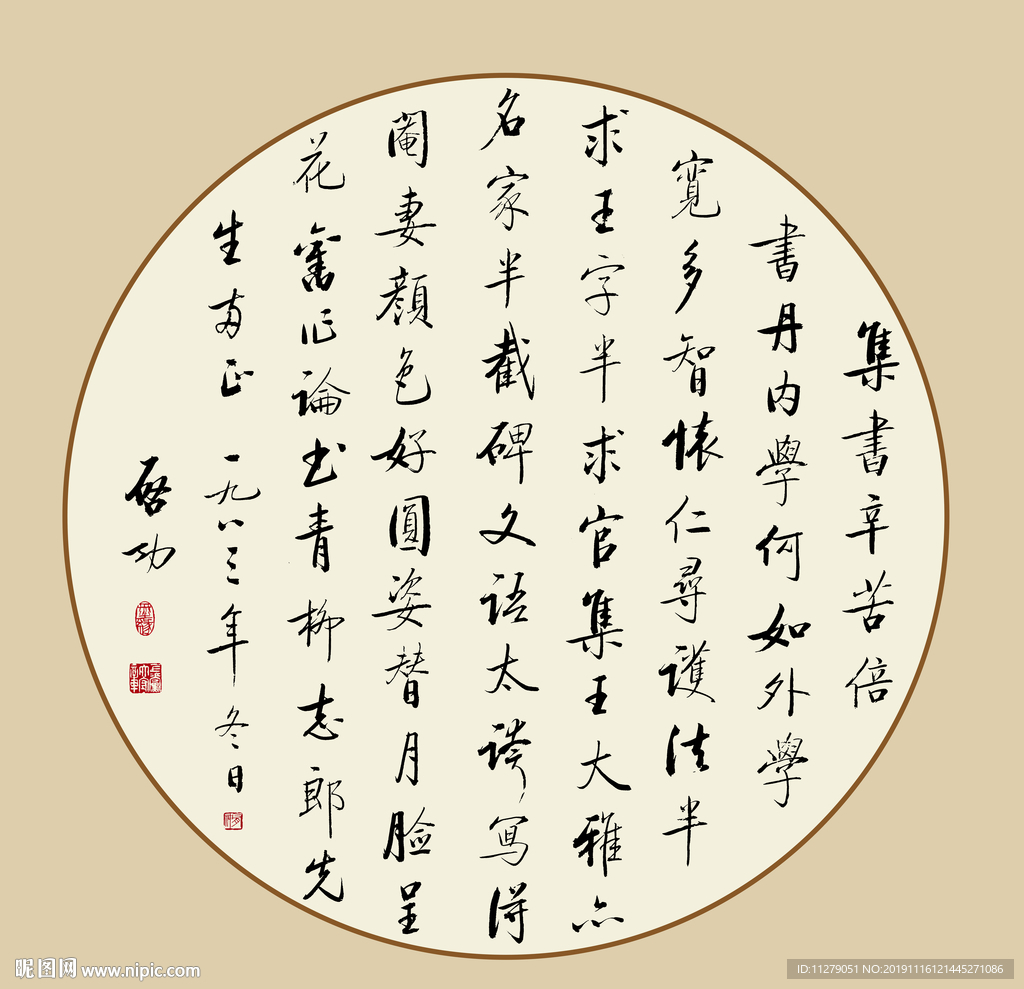 集書辛苦倍
書丹内學何如外學
寬多智懷仁尋護法半
求王字半求官集王大雅亦
名家半截碑文語太誇寫得
閹妻顔色好圓姿替月臉呈
花舊作論书青柳志郎先
生两正一九八三年冬日
启功
昵图网 www.nipic.com
ID:11279051 NO:20191116121445271086